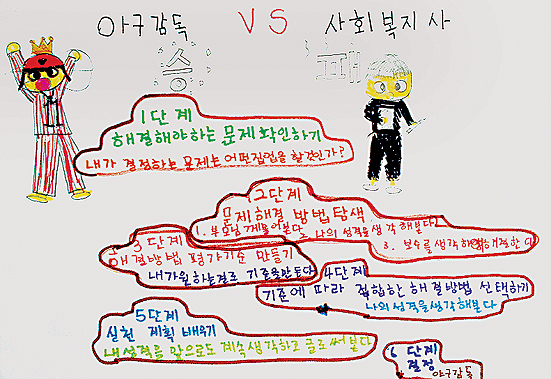 야구감독 VS 사회복지사
승 패
1단계
해결해야하는 문제 확인하기
내가 결정하는 문제는 어떤직업을 할것인가?
2단계
문제해결 방법탐색
1. 부모님께 물어본다
2. 나의 성격을 생각 해본다
3. 보수를 생각해 해결한다
3단계
해결방법 평가기준 만들기
내가원하는걸로 기준을만든다
4단계
기준에 따라 적합한 해결방법 선택하기
나의성격을생각해본다
5단계
실천 계획 배우기
내성격을 앞으로도 계속생각하고 글로써본다
6단계
결정
야구감독